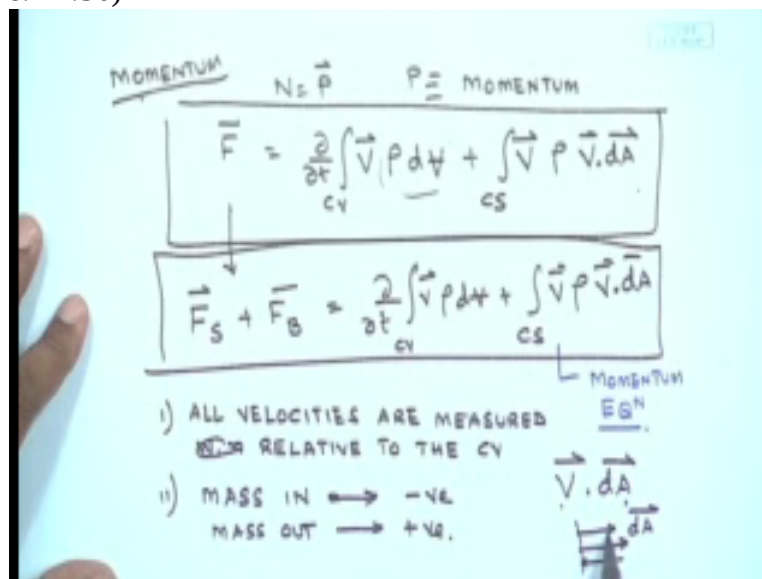 MOMENTUM
N = P⃗ P ≡ MOMENTUM
F̅ = ∂/∂t ∫ V⃗ ρ dV̶ + ∫ V⃗ ρ V⃗.dA⃗
CV CS
F⃗_S + F̅_B = ∂/∂t ∫ V⃗ ρ dV̶ + ∫ V⃗ ρ V⃗.dA̅
CV CS
MOMENTUM
EQᴺ.
i) ALL VELOCITIES ARE MEASURED
RELATIVE TO THE CV
ii) MASS IN → -VE
MASS OUT → +VE.
V⃗ . dA⃗
dA⃗